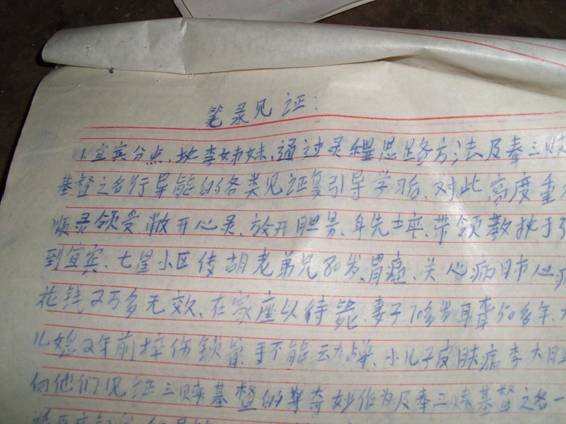 笔录见证:
1.宜宾分点,地李姊妹,通过灵程思路方法及奉三赎
基督之名行异能的各类见证等引导学习后,对此,高度重
顺灵领受敞开心灵、放开胆量、身先士卒、带领教执于
到宜宾、七星小区传胡老弟兄80岁、胃癌、关心病肺心
花钱2万多元无效、在家座以待毙、妻子70多岁耳聋50多年、
儿媳2年前摔伤锁骨、手不能动弹、小儿子皮肤病李大
向他们见证三赎基督的尊奇妙作为及奉三赎基督之名一